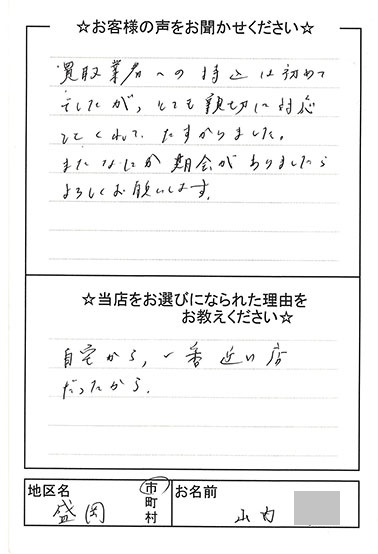 ☆お客様の声をお聞かせください☆
買取業者への持込は初めて
でしたが、とても親切に対応
してくれて、たすかりました。
またなにか機会がありましたら
よろしくお願いします。
☆当店をお選びになられた理由を
お教えください☆
自宅から、一番近い店
だったから。
地区名
盛岡
市
町
村
お名前
山内